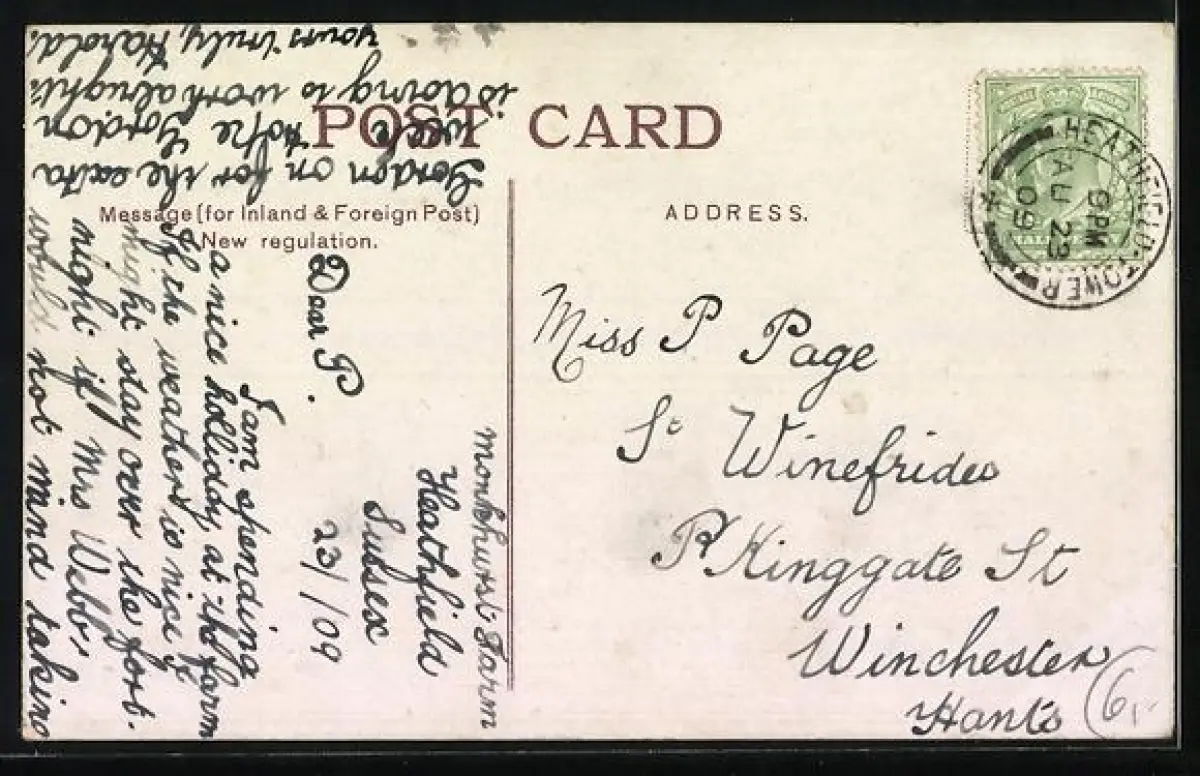 POST CARD
Message (for Inland & Foreign Post)
New regulation.
ADDRESS.
HEATHFIELD TOWER
9 PM
AU 23
09
HALFPENNY
Miss P Page
St Winefrides
Kinggate St
Winchester
Hants
6,-
Monkhurst Farm
Heathfield
Sussex
23/ /09
Dear P.
I am spending
a nice holliday at the farm
If the weather is nice I
might stay over the fort-
night if Mrs Webb,
would not mind taking
Gordon on for the exta
week Hope Gordon
is doing is work alright.
yours truly, Harold.